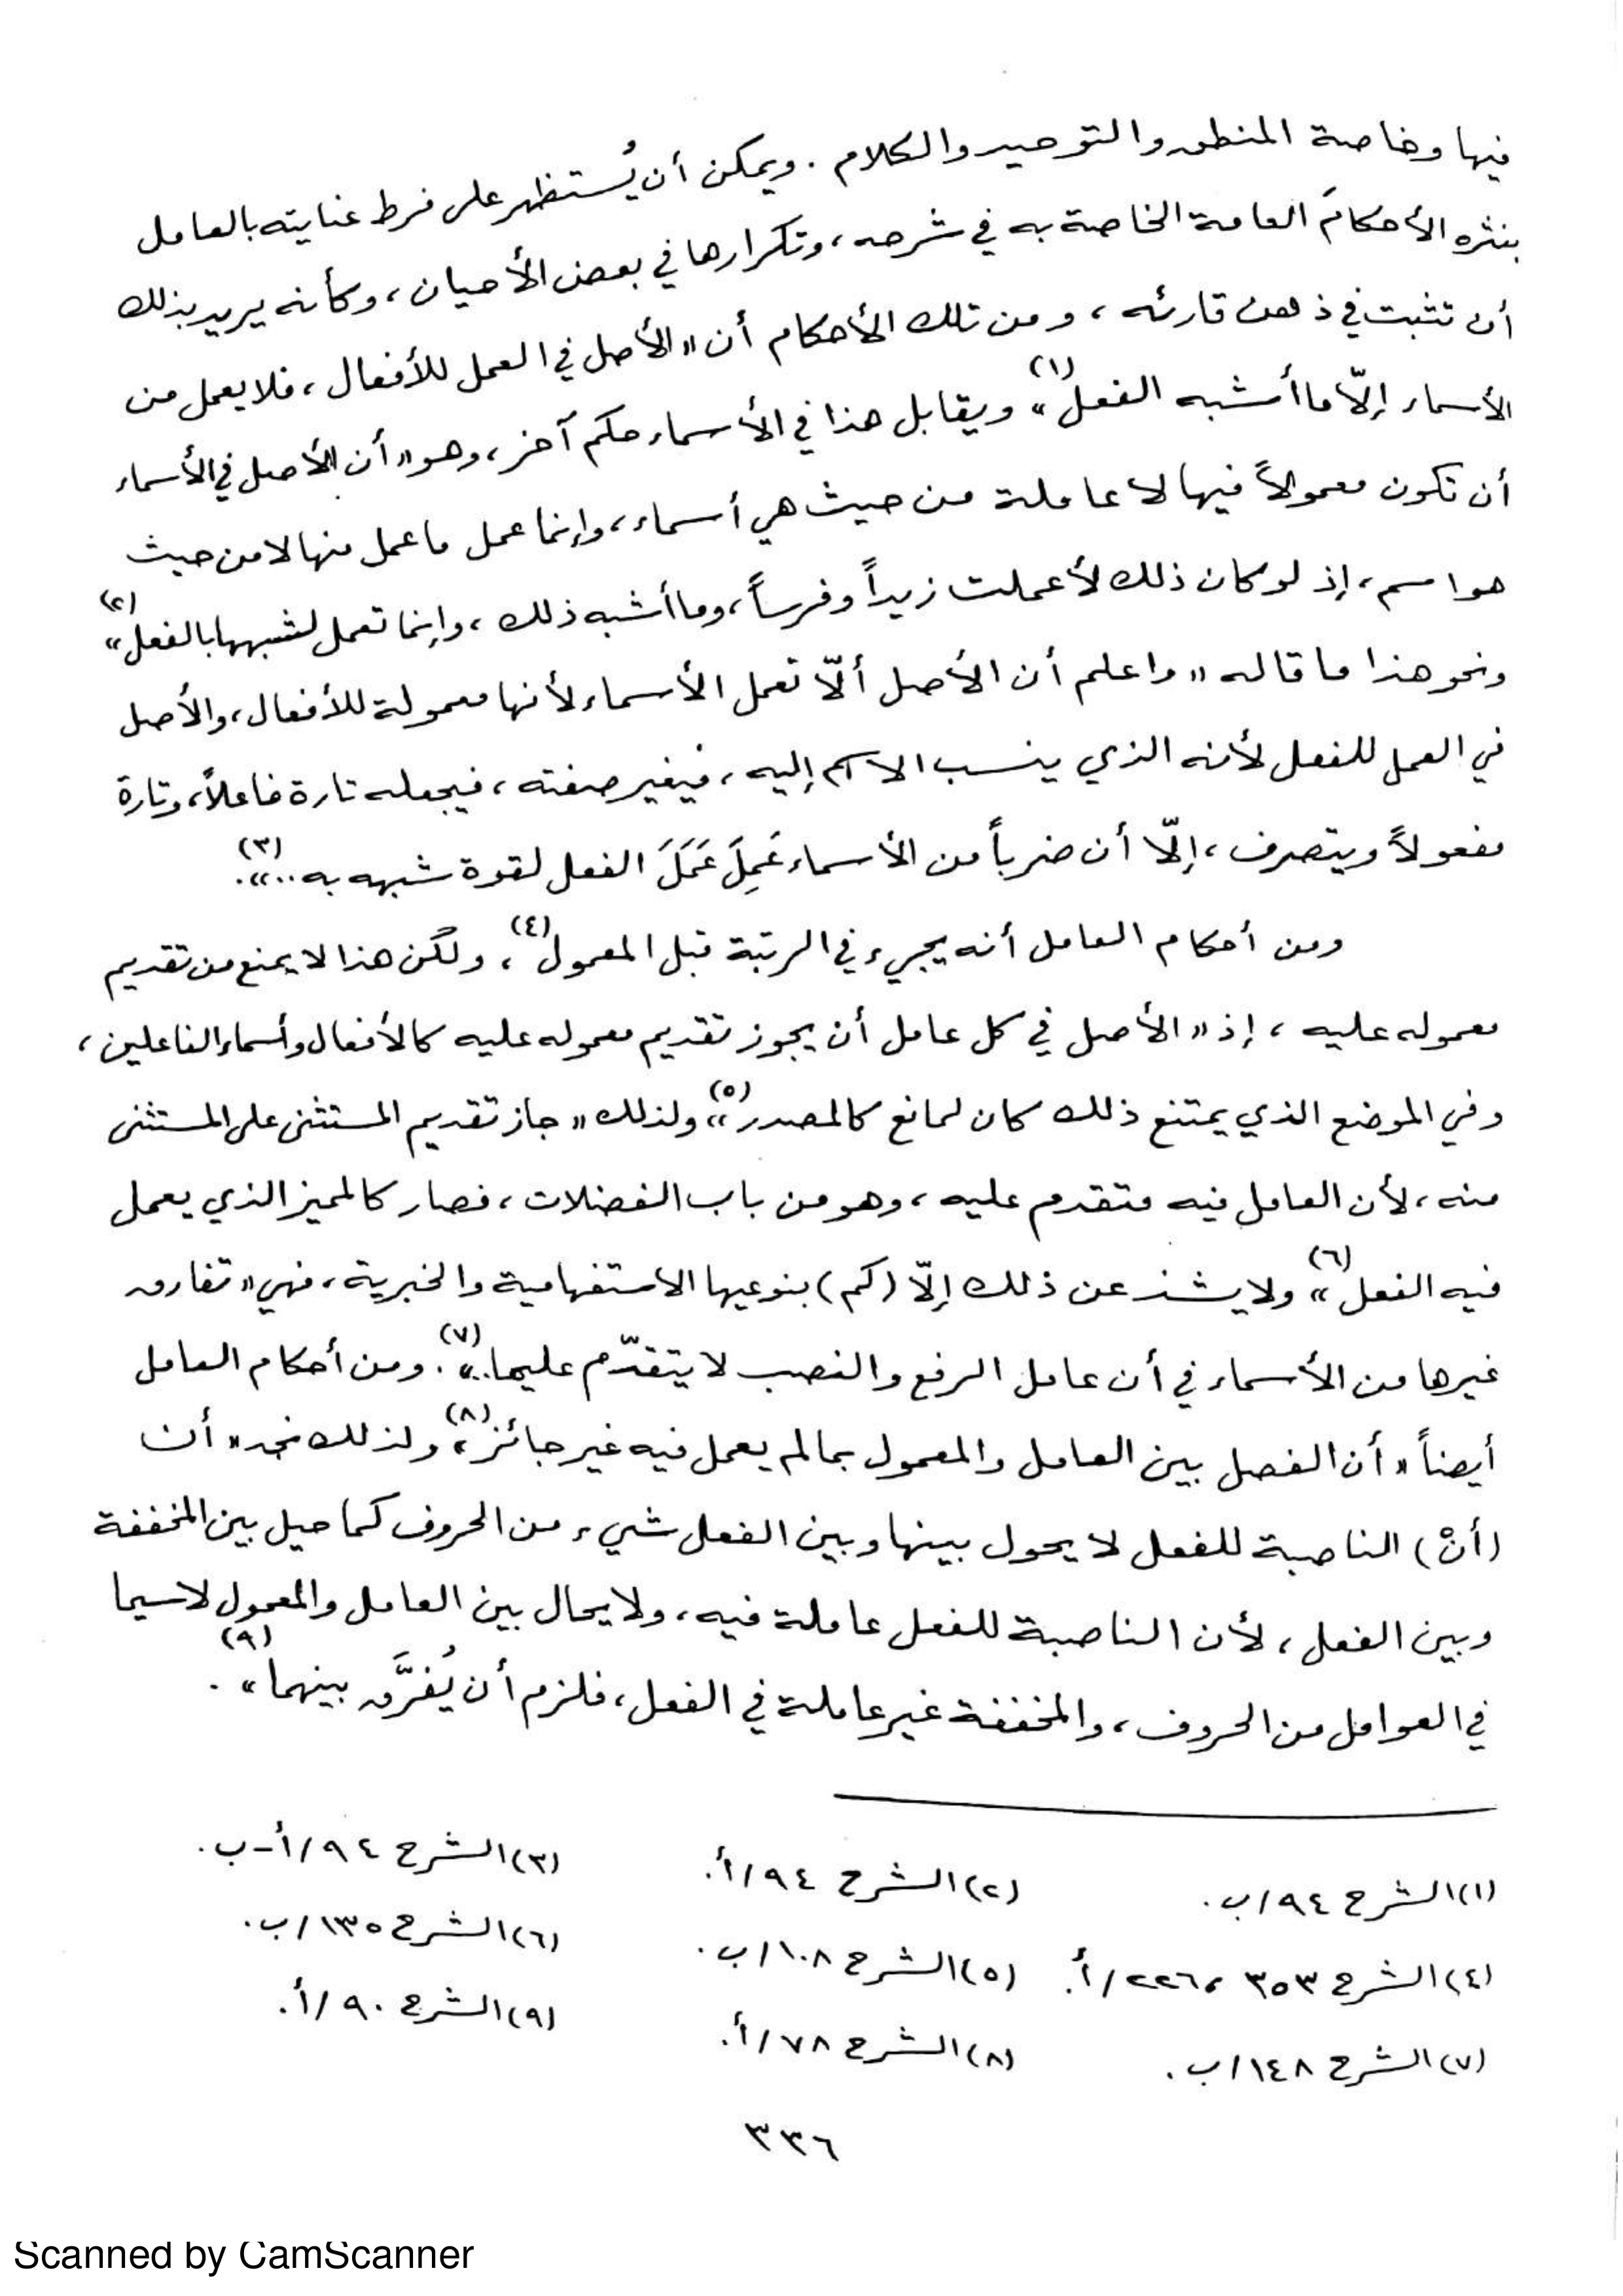 فيها وخاصة المنطق والتوحيد والكلام . ويمكن أن يُستظهر على فرط عنايته بالعامل
بنثره الأحكامَ العامة الخاصة به في شرحه ، وتكرارها في بعض الأحيان ، وكأنه يريد بذلك
أن تثبت في ذهن قارئه ، ومن تلك الأحكام أن « الأصل في العمل للأفعال ، فلا يعمل من
الأسماء إلّا ما أشبه الفعل »(١) ويقابل هذا في الأسماء حكم آخر ، وهو « أن الأصل في الأسماء
أن تكون معمولاً فيها لا عاملة من حيث هي أسماء ، وإنما عمل ما عمل منها لا من حيث
هو اسم ، إذ لو كان ذلك لأعملت زيداً وفرساً ، وما أشبه ذلك ، وإنما تعمل لشبهها بالفعل »(٢)
ونحو هذا ما قاله « واعلم أن الأصل ألّا تعمل الأسماء لأنها معمولة للأفعال ، والأصل
في العمل للفعل لأنه الذي ينسب الاسم إليه ، فيغير صفته ، فيجعله تارة فاعلاً ، وتارة
مفعولاً ويتصرف ، إلّا أن ضرباً من الأسماء عَمِلَ عَمَلَ الفعل لقوة شبهه به .. »(٣).
ومن أحكام العامل أنه يجيء في الرتبة قبل المعمول(٤) ، ولكن هذا لا يمنع من تقديم
معموله عليه ، إذ « الأصل في كل عامل أن يجوز تقديم معموله عليه كالأفعال وأسماء الفاعلين ،
وفي الموضع الذي يمتنع ذلك كان لمانع كالمصدر »(٥) ولذلك « جاز تقديم المستثنى على المستثنى
منه ، لأن العامل فيه متقدم عليه ، وهو من باب الفضلات ، فصار كالمميز الذي يعمل
فيه الفعل »(٦) ولا يشذ عن ذلك إلّا (كم) بنوعيها الاستفهامية والخبرية ، فهي « تفارق
غيرها من الأسماء في أن عامل الرفع والنصب لا يتقدّم عليها .. »(٧). ومن أحكام العامل
أيضاً « أن الفصل بين العامل والمعمول بما لم يعمل فيه غير جائز »(٨) ولذلك نجد « أن
(أنْ) الناصبة للفعل لا يحول بينها وبين الفعل شيء من الحروف كما حيل بين المخففة
وبين الفعل ، لأن الناصبة للفعل عاملة فيه ، ولا يحال بين العامل والمعمول لاسيما
في العوامل من الحروف ، والمخففة غير عاملة في الفعل ، فلزم أن يُفرَّق بينهما »(٩) .
(١) الشرح ٩٤/ب. (٢) الشرح ٩٤/أ. (٣) الشرح ٩٤/أ-ب.
(٤) الشرح ٣٥٣ ، ٢٢٦/أ. (٥) الشرح ١٠٨/ب. (٦) الشرح ١٣٥/ب.
(٧) الشرح ١٤٨/ب. (٨) الشرح ٧٨/أ. (٩) الشرح ٩٠/أ.
٣٣٦
Scanned by CamScanner